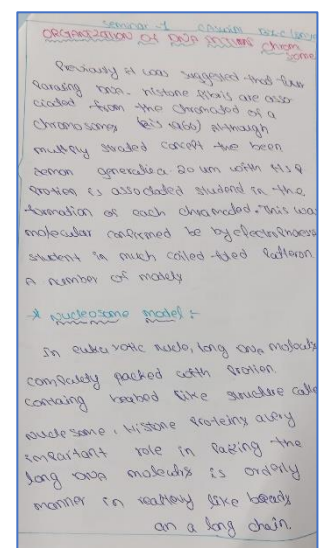 Seminar -1
ORGANIZATION Of DNA Chrom
some
Previously it was suggested that four
Parasing non-histone fibris are asso
ciaded from the chromated of a
chromosomes although
multiply straded concept the been
20 um with HS &
Protien is associated student in the
formation of each chromated. This was
molecular confirmed be by electro
student in much coiled
A number of models
* Nucleosome model :-
In nude, long DNA molecule
compalely packed with Protien
containg beabed like structure calle
nucle some. Histone Proteins avery
impartant role in Paking the
long DNA moleculs is orderly
manner in like beeads
an a long chain.